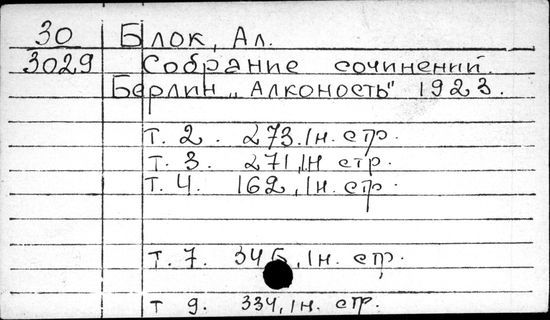 30 Блок, Ал.
3029 Собрание сочинений.
Берлин „Алконость" 1923.
т. 2. 273. 1н. стр.
т. 3. 271, 1н стр.
т. 4. 162, 1н. стр.
т. 7. 345, 1н. стр.
т 9. 334, 1н. стр.